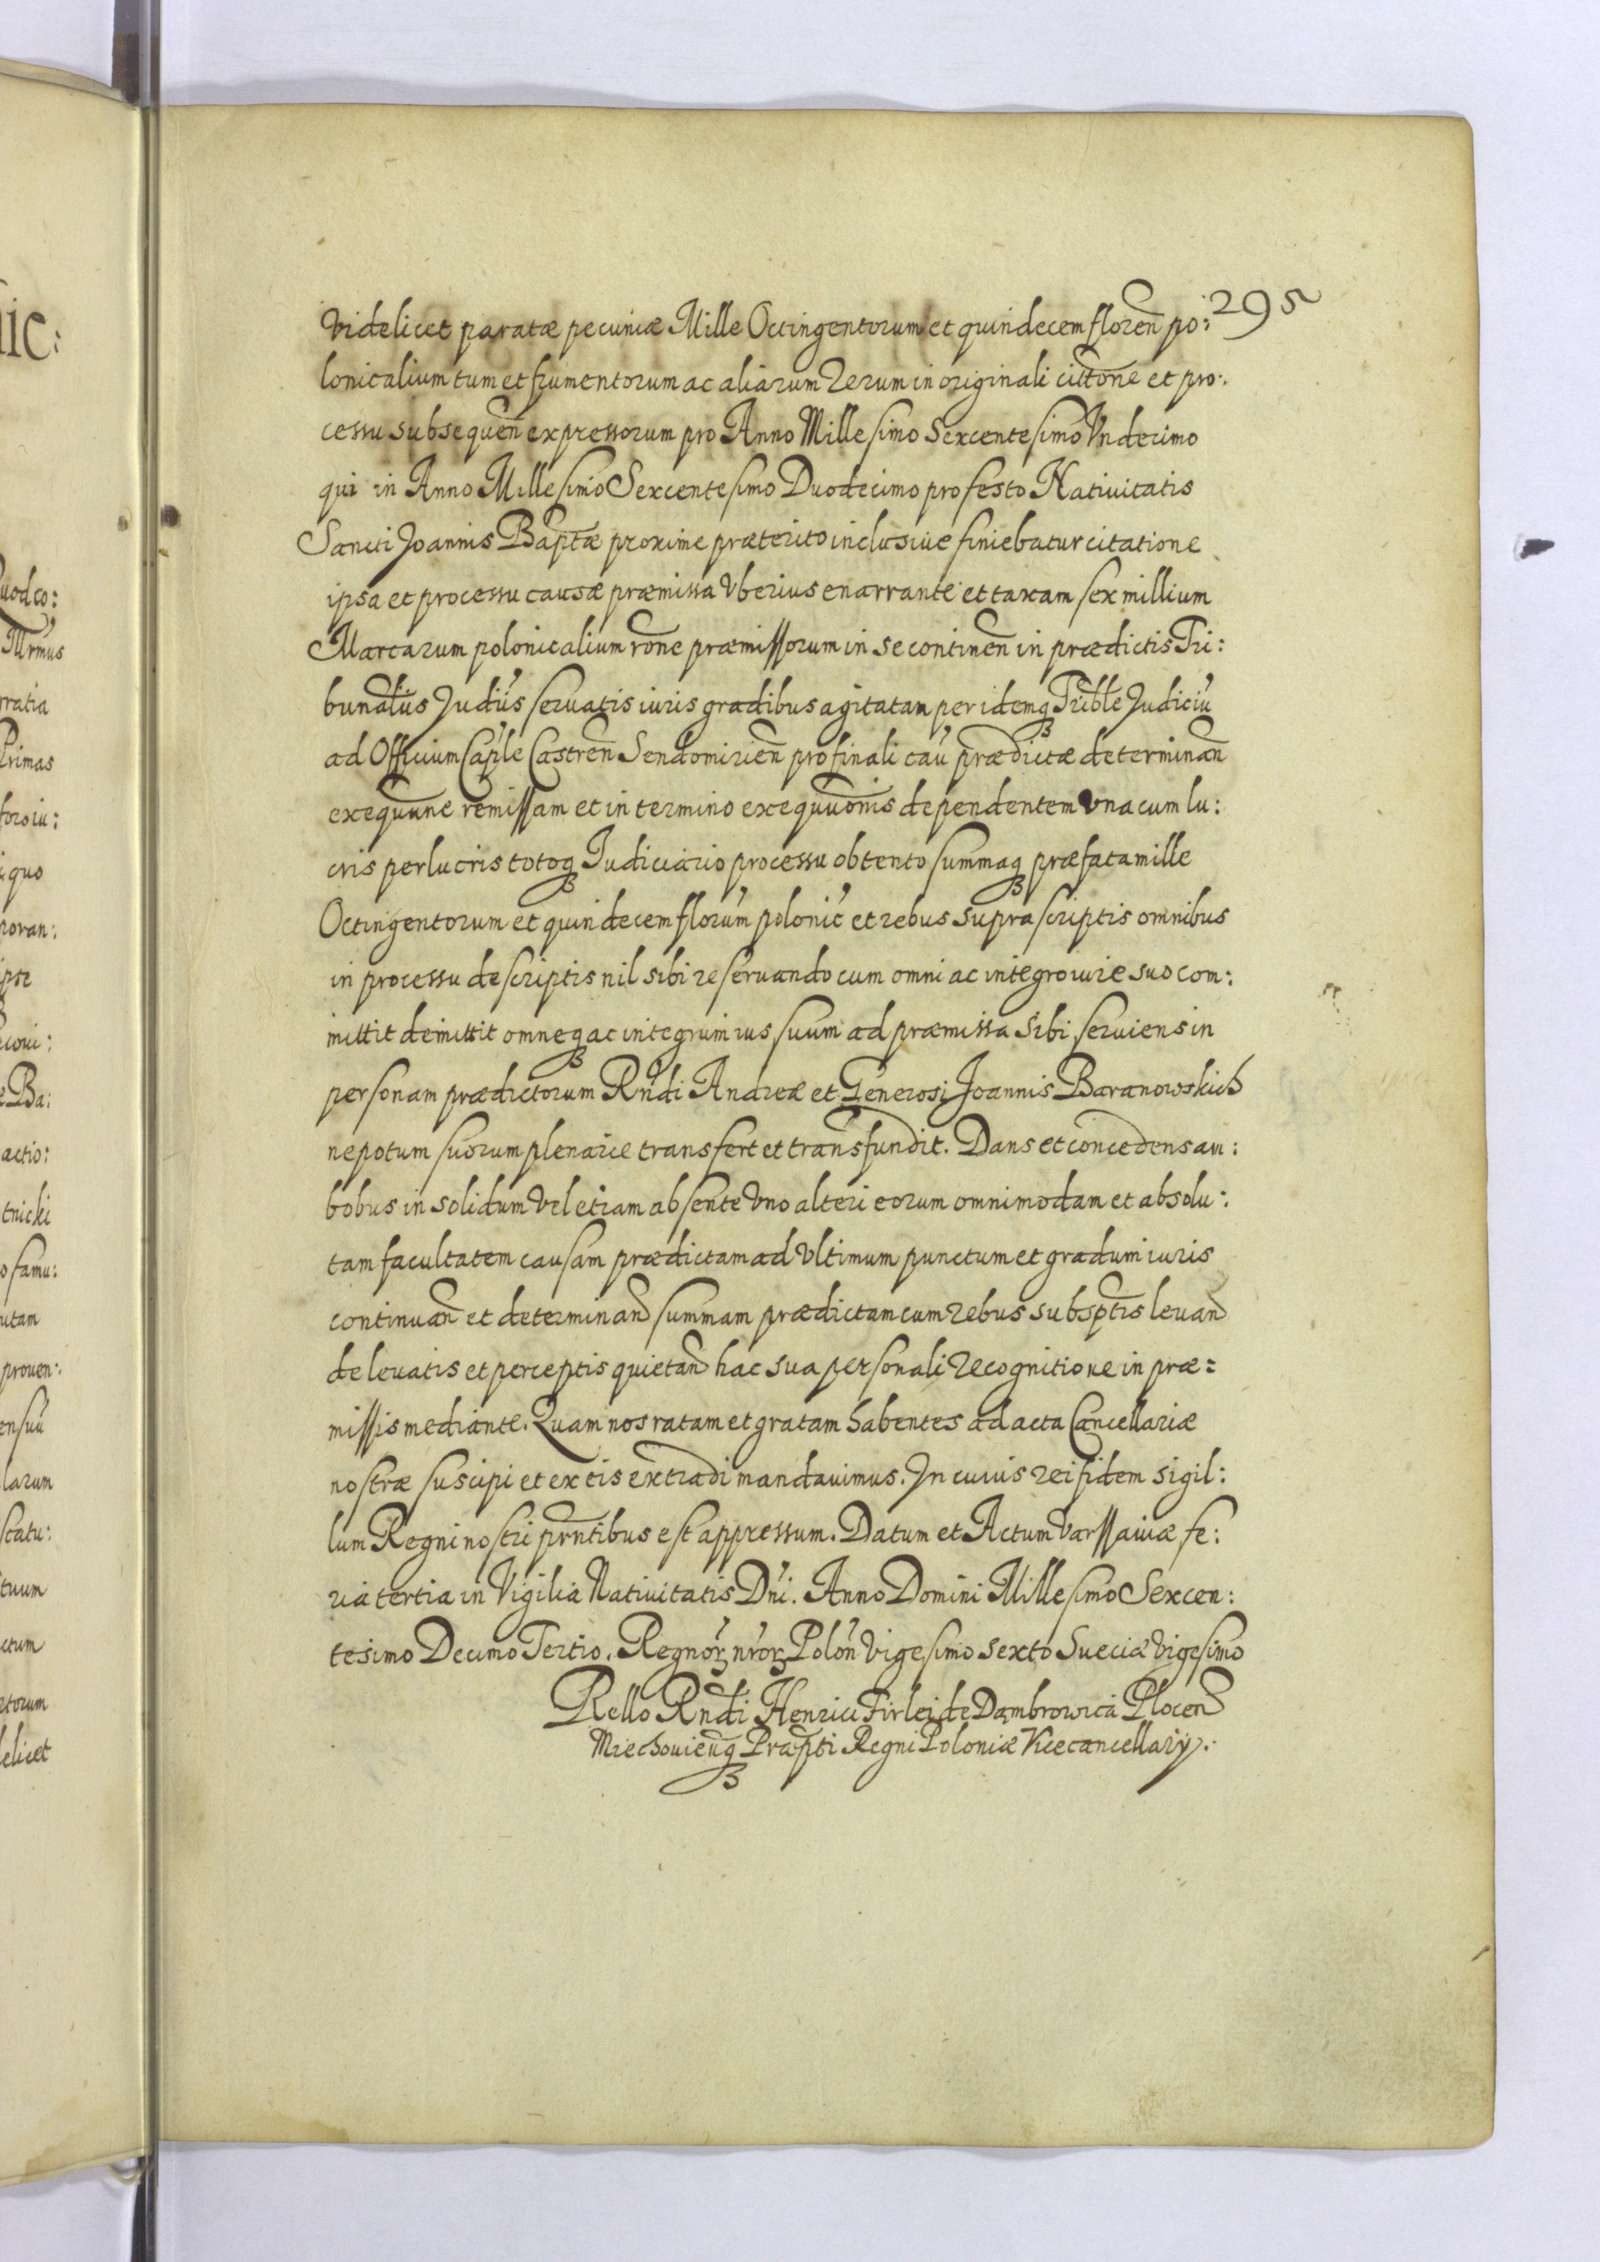 295
videlicet paratæ pecuniæ Mille Octingentorum et quindecem floren̄ po:
lonicalium tum et frumentorum ac aliarum rerum in originali cittōne et pro:
cessu subsequen̄ expressorum pro Anno Millesimo Sexcentesimo Vndecimo
qui in Anno Millesimo Sexcentesimo Duodecimo pro festo Natiuitatis
Sancti Joannis Baptæ proxime præterito inclusiue finiebatur citatione
ipsa et processu causæ præmissa vberius enarrante et taxam sex millium
Marcarum polonicalium rōne præmissorum in se continen̄ in prædictis Tri:
bunālius Judiijs seruatis iuris gradibus agitatam per idemq3 Trible Judiciū
ad Officium Caple Castren̄ Sendomirien̄ pro finali cau prædictæ determinan̄
exequūne remissam et in termino exequuōnis dependentem vna cum lu:
cris perlucris totoq3 Iudiciario processu obtento summaq3 præfata mille
Octingentorum et quindecem floru̅m polonic̄ et rebus suprascriptis omnibus
in processu descriptis nil sibi reseruando cum omni ac integro iure suo com:
mittit demittit omneq3 ac integrum ius suum ad præmissa sibi seruiens in
personam prædictorum Rn̄di Andreæ et Generosi Joannis Baranowskich
nepotum suorum plenarie transfert et transfundit. Dans et concedens am:
bobus in solidum vel etiam absente vno alteri eorum omnimodam et absolu:
tam facultatem causam prædictam ad vltimum punctum et gradum iuris
continuan̄ et determinan̄ summam prædictam cum rebus subsptis leuan̄
de leuatis et perceptis quietan̄ hac sua personali recognitione in præ=
missis mediante. Quam nos ratam et gratam habentes ad acta Cancellariæ
nostræ suscipi et ex eis extradi mandauimus. In cuius rei fidem sigil:
lum Regni nostri prn̄tibus est appressum. Datum et Actum Varssauiæ fe:
ria tertia in Vigilia Natiuitatis Dn̄i. Anno Domini Millesimo Sexcen:
tesimo Decimo Tertio. Regnor3 nror3 Polon̄ Vigesimo sexto Sueciæ Vigesimo
Rello Rn̄di Henrici Firlei de Dambrowica Plocen̄
Miechouienq3 Præpti Regni Poloniæ Vicecancellarij.